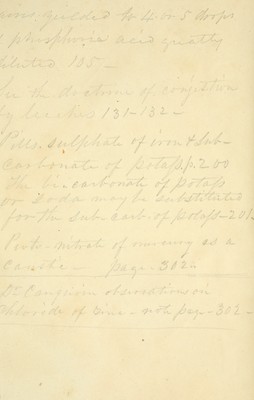 yielded to 4 or 5 drops
phosphoric acid greatly
diluted. 105 —
the doctrine of congestion
by leaches 131-132 —
Pills, sulphate of iron & sub-
carbonate of potass p. 200
The bi-carbonate of potass
or Soda may be substituted
for the sub carb. of potass - 201
Proto-nitrate of mercury as a
caustic — page - 302
observations on
Chloride of zinc - note page - 302 -